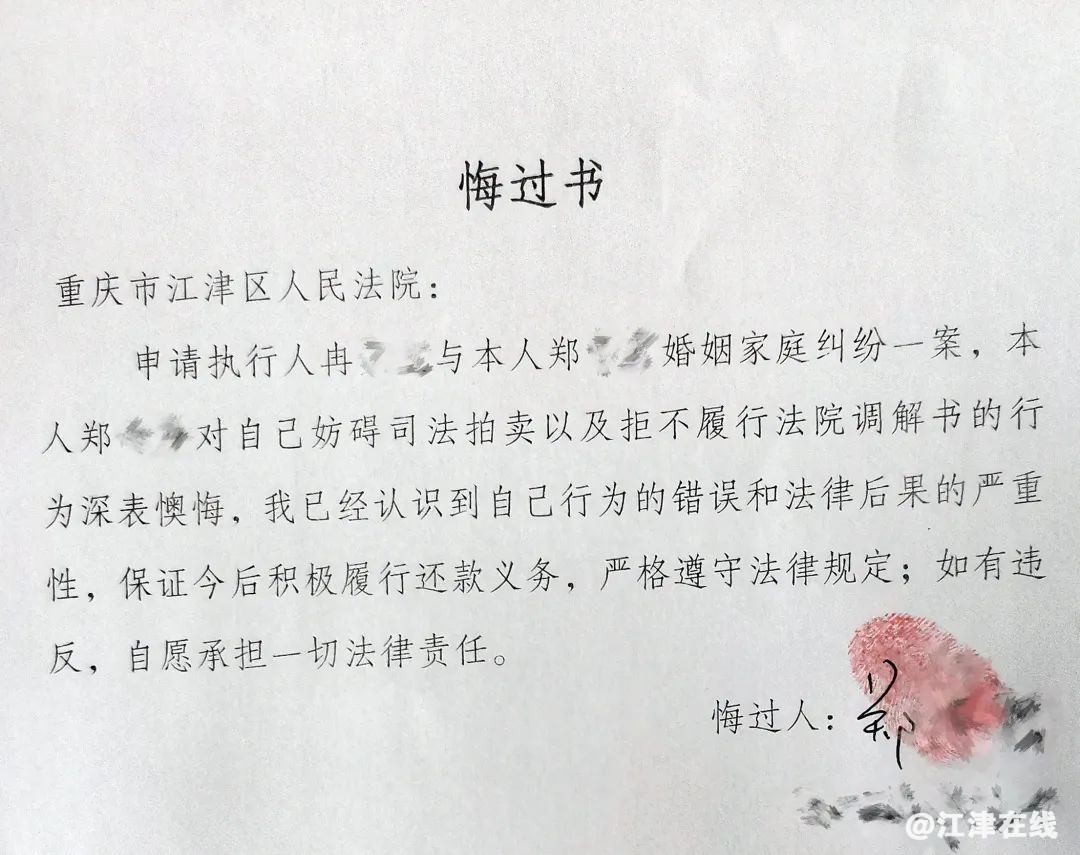 悔过书
重庆市江津区人民法院：
申请执行人冉与本人郑婚姻家庭纠纷一案，本
人郑对自己妨碍司法拍卖以及拒不履行法院调解书的行
为深表懊悔，我已经认识到自己行为的错误和法律后果的严重
性，保证今后积极履行还款义务，严格遵守法律规定；如有违
反，自愿承担一切法律责任。
悔过人：郑
@江津在线